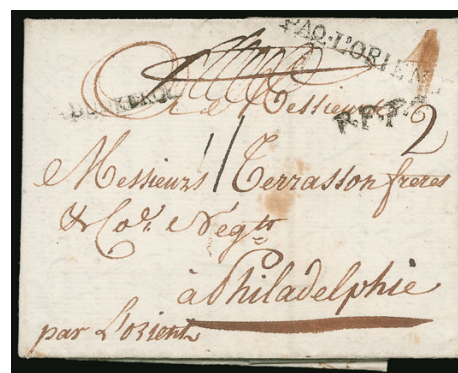 PAQ·L'ORIENT
DUNKERQUE
à Messieurs
B.F.T.
2
11
Messieurs Terrasson freres
& Coe. Négts
à Philadelphie
par L'orient